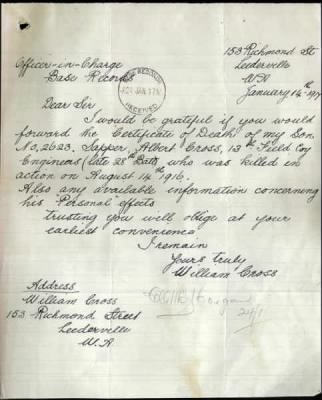 153 Richmond St
Officer-in-Charge
Leederville
Base Records
W.A
BASE RECORDS
24 JAN 1917
RECEIVED
January 14th 1917
Dear Sir
I would be grateful if you would
forward the Certificate of Death, of my Son.
No, 2623. Sapper, Albert Cross, 13th Field Coy
Engineers (late 28th Batt) who was killed in
action on August 14th 1916.
Also any available information concerning
his Personal effects
trusting you will oblige at your
earliest convenience
I remain
Yours Truly
William Cross
Address
William Cross
153 Richmond Street
Leederville
W.A.
24/1